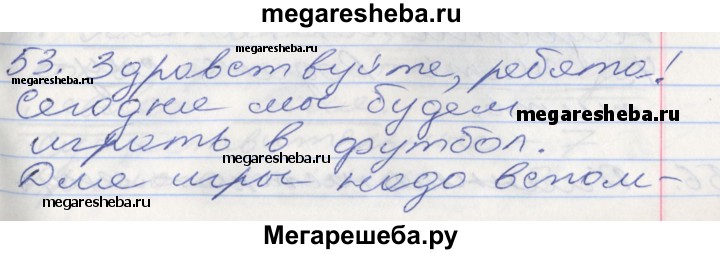 megaresheba.ru
megaresheba.ru
53. Здравствуйте, ребята!
Сегодня мы будем
megaresheba.ru
играть в футбол.
megaresheba.ru
Для игры надо вспом-
megaresheba.ru
Мегарешеба.ру